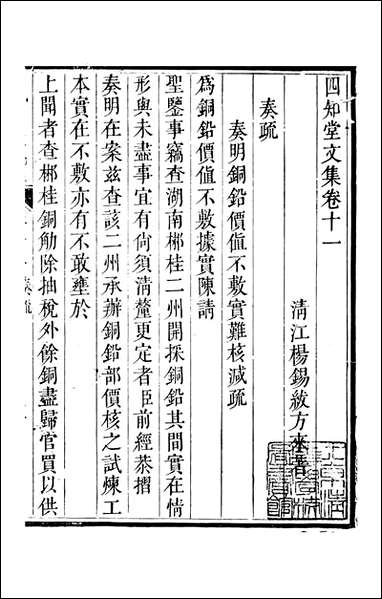 四知堂文集卷十一
清江楊錫紱方來著
奏疏
奏明銅鉛價值不敷實難核減疏
爲銅鉛價值不敷據實陳請
聖鑒事竊查湖南郴桂二州開採銅鉛其間實在情
形與未盡事宜有尙須清釐更定者臣前經恭摺
奏明在案兹查該二州承辦銅鉛部價核之試煉工
本實在不敷亦有不敢壅於
上聞者查郴桂銅觔除抽稅外餘銅盡歸官買以供